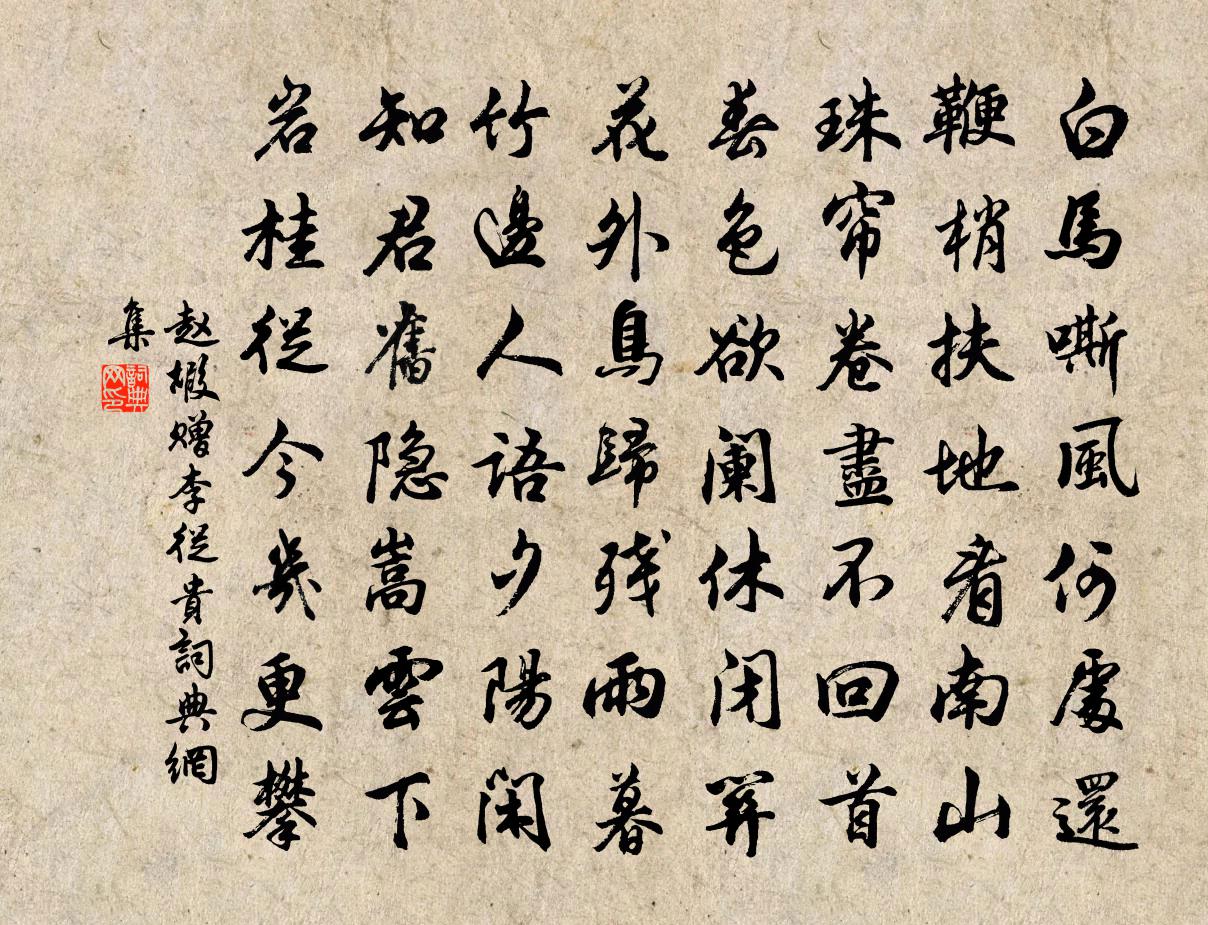 白馬嘶風何處還
鞭梢拂地看南山
珠帘卷盡不回首
春色欲阑休闭關
花外鳥歸残雨暮
竹邊人語夕陽閑
知君舊隐嵩雲下
岩桂從今幾更攀
赵嘏赠李從貴詞典網
集
詞典
网印